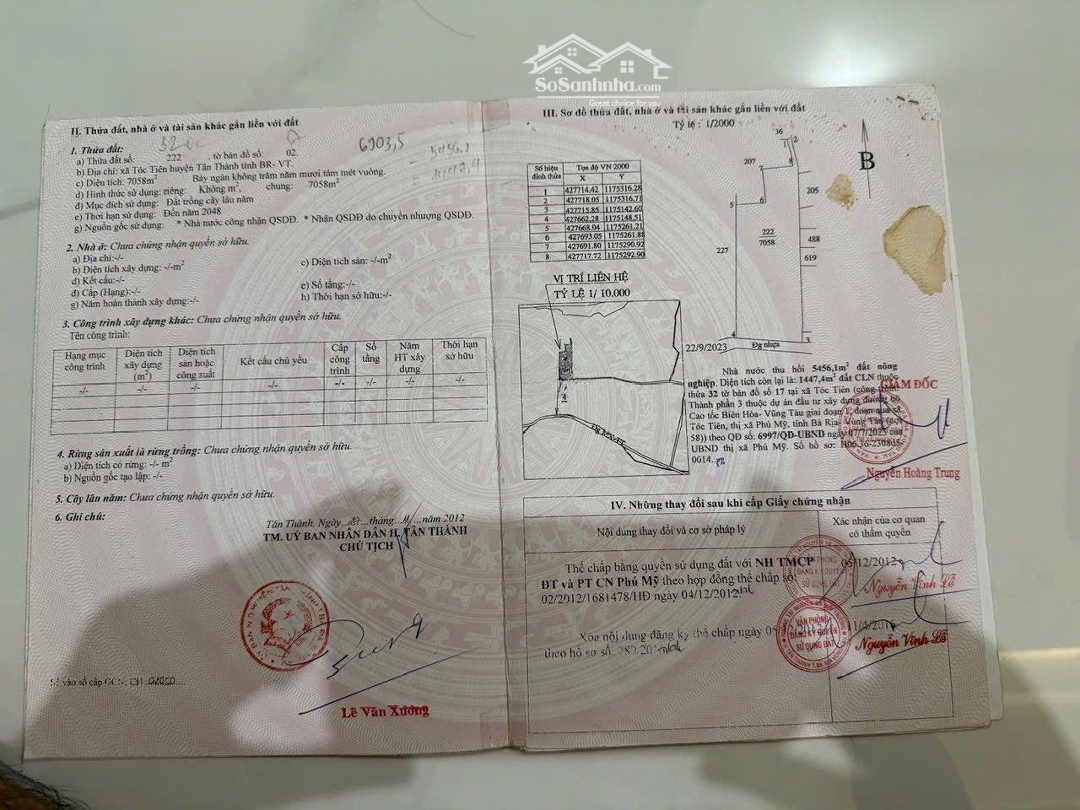 SoSanhnha.com
Great choice for you
II. Thửa đất, nhà ở và tài sản khác gắn liền với đất
1. Thửa đất:
6903,5
a) Thửa đất số: 222 tờ bản đồ số: 02.
b) Địa chỉ: xã Tóc Tiên huyện Tân Thành tỉnh BR- VT.
c) Diện tích: 7058m² Bảy ngàn không trăm năm mươi tám mét vuông.
d) Hình thức sử dụng: riêng: Không m², chung: 7058m²
đ) Mục đích sử dụng: Đất trồng cây lâu năm
e) Thời hạn sử dụng: Đến năm 2048
g) Nguồn gốc sử dụng: * Nhà nước công nhận QSDĐ. * Nhận QSDĐ do chuyển nhượng QSDĐ.
2. Nhà ở: Chưa chứng nhận quyền sở hữu.
a) Địa chỉ:-/-
b) Diện tích xây dựng: -/-m² c) Diện tích sàn: -/-m²
d) Kết cấu:-/-
đ) Cấp (Hạng):-/- e) Số tầng:-/-
g) Năm hoàn thành xây dựng:-/- h) Thời hạn sở hữu:-/-
3. Công trình xây dựng khác: Chưa chứng nhận quyền sở hữu.
Tên công trình:
Hạng mục công trình Diện tích xây dựng (m²) Diện tích sàn hoặc công suất Kết cấu chủ yếu Cấp công trình Số tầng Năm HT xây dựng Thời hạn sở hữu
-/- -/- -/- -/- -/- -/- -/- -/-
4. Rừng sản xuất là rừng trồng: Chưa chứng nhận quyền sở hữu.
a) Diện tích có rừng: -/- m²
b) Nguồn gốc tạo lập: -/-
5. Cây lâu năm: Chưa chứng nhận quyền sở hữu.
6. Ghi chú:
Tân Thành, Ngày tháng 11 năm 2012
TM. UỶ BAN NHÂN DÂN H. TÂN THÀNH
CHỦ TỊCH
Lê Văn Xương
Số vào sổ cấp GCN: CH
III. Sơ đồ thửa đất, nhà ở và tài sản khác gắn liền với đất
Tỷ lệ : 1/2000
Số hiệu đỉnh thửa Tọa độ VN 2000
X Y
1 427714.42 1175316.28
2 427718.05 1175316.71
3 427715.85 1175142.60
4 427662.28 1175148.51
5 427668.04 1175261.21
6 427693.05 1175261.88
7 427691.80 1175290.92
8 427717.72 1175292.90
B
36 2
207
7 8
205
5 6
222
7058
227
488
619
4
Đg nhựa
3
VỊ TRÍ LIÊN HỆ
TỶ LỆ 1/ 10.000
22/9/2023
Nhà nước thu hồi 5456,1m² đất nông
nghiệp. Diện tích còn lại là: 1447,4m² đất CLN thuộc
thửa 32 tờ bản đồ số 17 tại xã Tóc Tiên (công trình
Thành phần 3 thuộc dự án đầu tư xây dựng đường bộ
Cao tốc Biên Hòa- Vũng Tàu giai đoạn 1, đoạn qua xã
Tóc Tiên, thị xã Phú Mỹ, tỉnh Bà Rịa- Vũng Tàu (đợt
58)) theo QĐ số: 6997/QĐ-UBND ngày 07/7/2023 của
UBND thị xã Phú Mỹ. Số hồ sơ: H06.36-230808-
0014.
GIÁM ĐỐC
Nguyễn Hoàng Trung
IV. Những thay đổi sau khi cấp Giấy chứng nhận
Nội dung thay đổi và cơ sở pháp lý
Xác nhận của cơ quan có thẩm quyền
Thế chấp bằng quyền sử dụng đất với NH TMCP
ĐT và PT CN Phú Mỹ theo hợp đồng thế chấp số:
02/2912/1681478/HĐ ngày 04/12/2012
/12/2012
VĂN PHÒNG ĐĂNG KÝ QUYỀN SỬ DỤNG ĐẤT
Nguyễn Vĩnh Lễ
Xóa nội dung đăng ký thế chấp ngày
theo hồ sơ số:
VĂN PHÒNG ĐĂNG KÝ QUYỀN SỬ DỤNG ĐẤT
Nguyễn Vĩnh Lễ